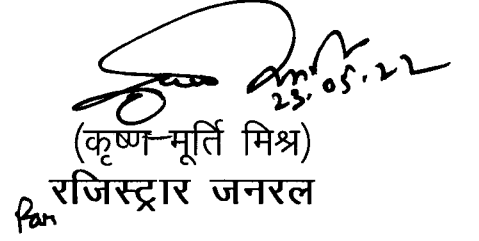 23.05.22
(कृष्ण मूर्ति मिश्र)
रजिस्ट्रार जनरल